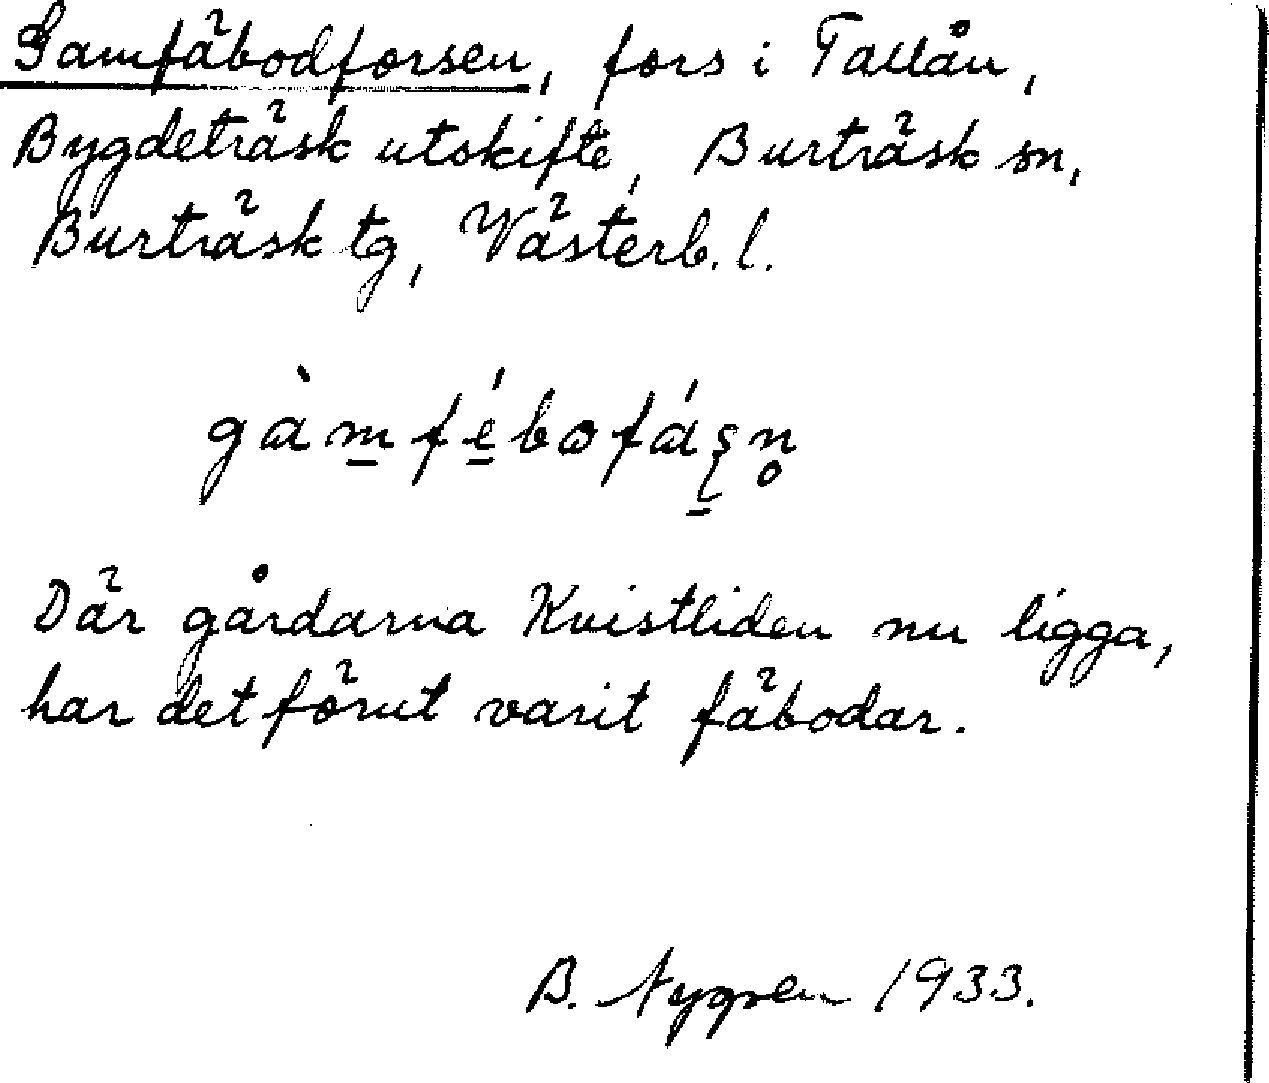 Gamfäbodforsen, fors i Tallån,
Bygdeträsk utskifte, Burträsk sn,
Burträsk tg, Västerb. l.
gàm̱fé̱bofáʂn̥
Där gårdarna Kvistliden nu ligga,
har det förut varit fäbodar.
B. Nygren 1933.